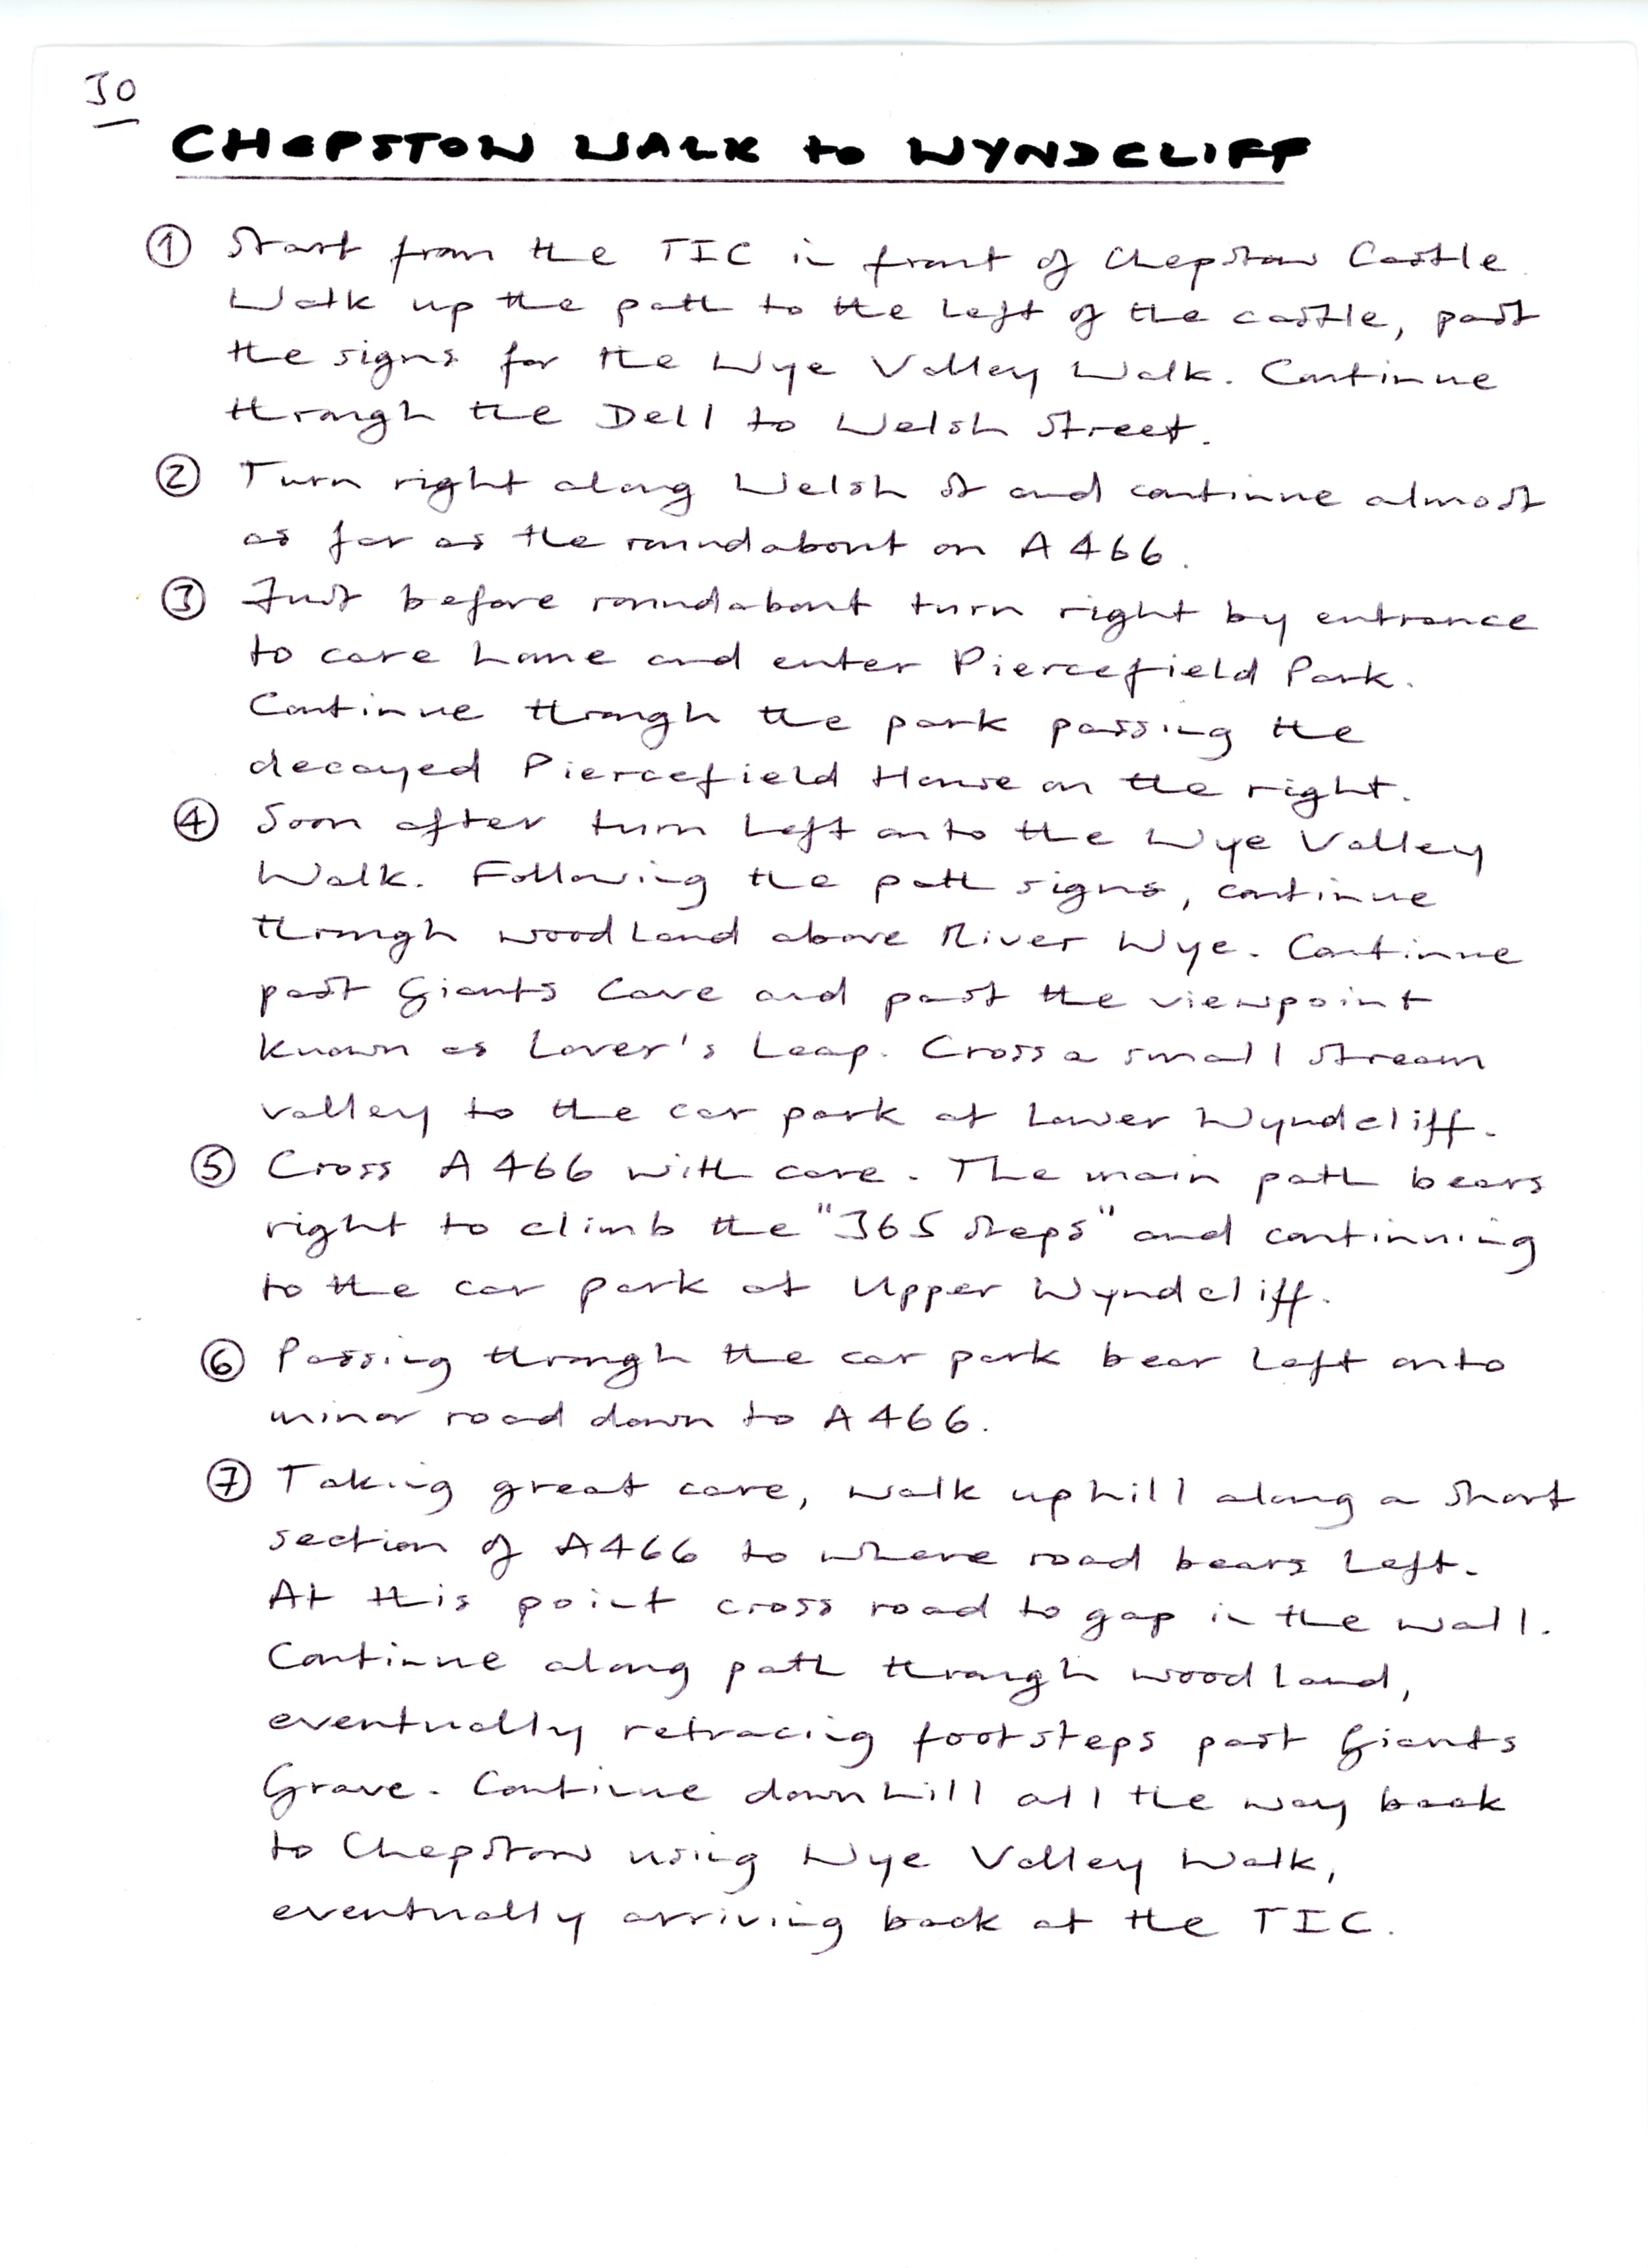 30
CHEPSTOW WALK to WYNDCLIFF
① Start from the TIC in front of Chepstow Castle.
Walk up the path to the left of the castle, past
the signs for the Wye Valley Walk. Continue
through the Dell to Welsh Street.
② Turn right along Welsh St and continue almost
as far as the roundabout on A466.
③ Just before roundabout turn right by entrance
to care home and enter Piercefield Park.
Continue through the park passing the
decayed Piercefield House on the right.
④ Soon after turn left onto the Wye Valley
Walk. Following the path signs, continue
through woodland above River Wye. Continue
past Giants Cave and past the viewpoint
known as Lover's Leap. Cross a small stream
valley to the car park at Lower Wyndcliff.
⑤ Cross A466 with care. The main path bears
right to climb the "365 Steps" and continuing
to the car park at Upper Wyndcliff.
⑥ Passing through the car park bear left onto
minor road down to A466.
⑦ Taking great care, walk uphill along a short
section of A466 to where road bears left.
At this point cross road to gap in the wall.
Continue along path through woodland,
eventually retracing footsteps past Giants
Grave. Continue downhill all the way back
to Chepstow using Wye Valley Walk,
eventually arriving back at the TIC.